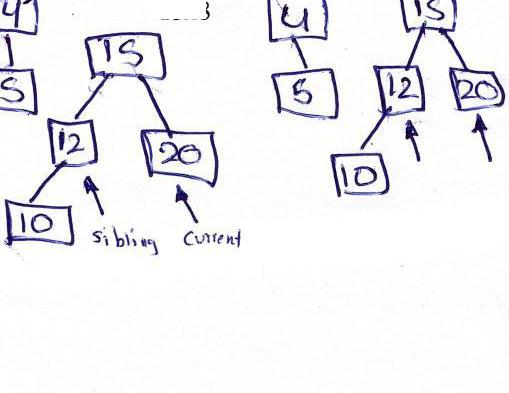 4
1S
5
12
20
10
sibling
current
4
5
1S
12
20
10